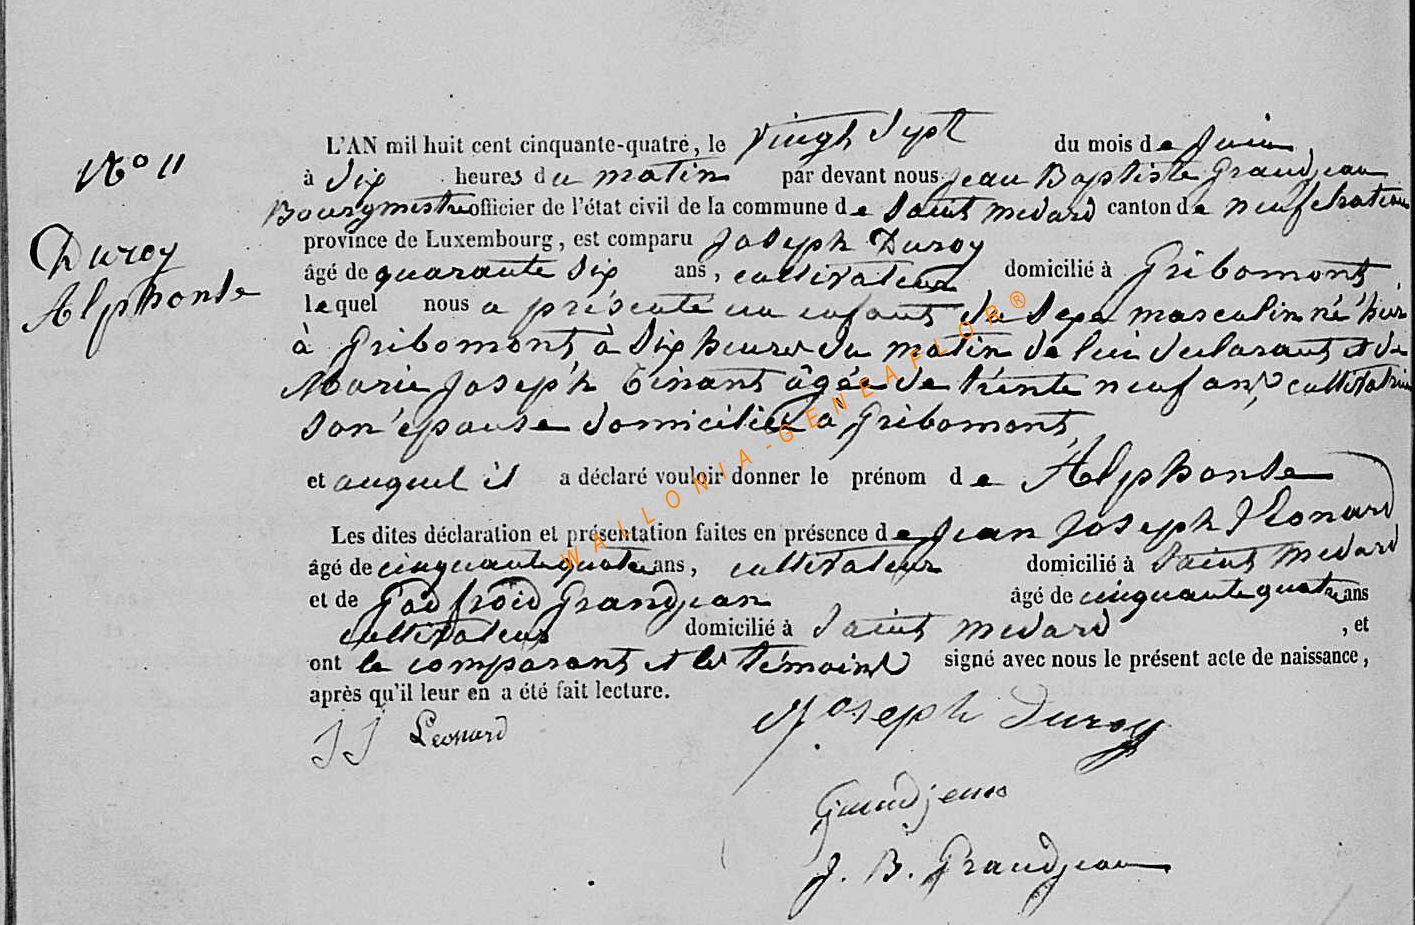 L'AN mil huit cent cinquante-quatre, le vingt sept du mois de Juin,
N° 11
à dix heures du matin par devant nous Jean Baptiste Grandjean
Bourgmestre officier de l'état civil de la commune de Saint Medard canton de neufchateau
Duroy
province de Luxembourg, est comparu Joseph Duroy
âgé de quarante six ans, cultivateur domicilié à Gribomont
Alphonse
lequel nous a présenté un enfant du sexe masculin né hier
à Gribomont à dix heures du matin de lui declarant et de
Marie Joseph Tinant âgée de trente neuf ans, cultivatrice
son épouse domiciliée à Gribomont
et auquel il a déclaré vouloir donner le prénom de Alphonse
Les dites déclaration et présentation faites en présence de Jean Joseph Léonard
âgé de cinquante quatre ans, cultivateur domicilié à Saint Medard
et de Godfroid Grandjean âgé de cinquante quatre ans
cultivateur domicilié à Saint Medard, et
ont le comparant et les témoins signé avec nous le présent acte de naissance,
après qu'il leur en a été fait lecture.
J J Leonard
Joseph Duroy
Grandjean
J. B. Grandjean
WALLONIA-GENEAFLOR®